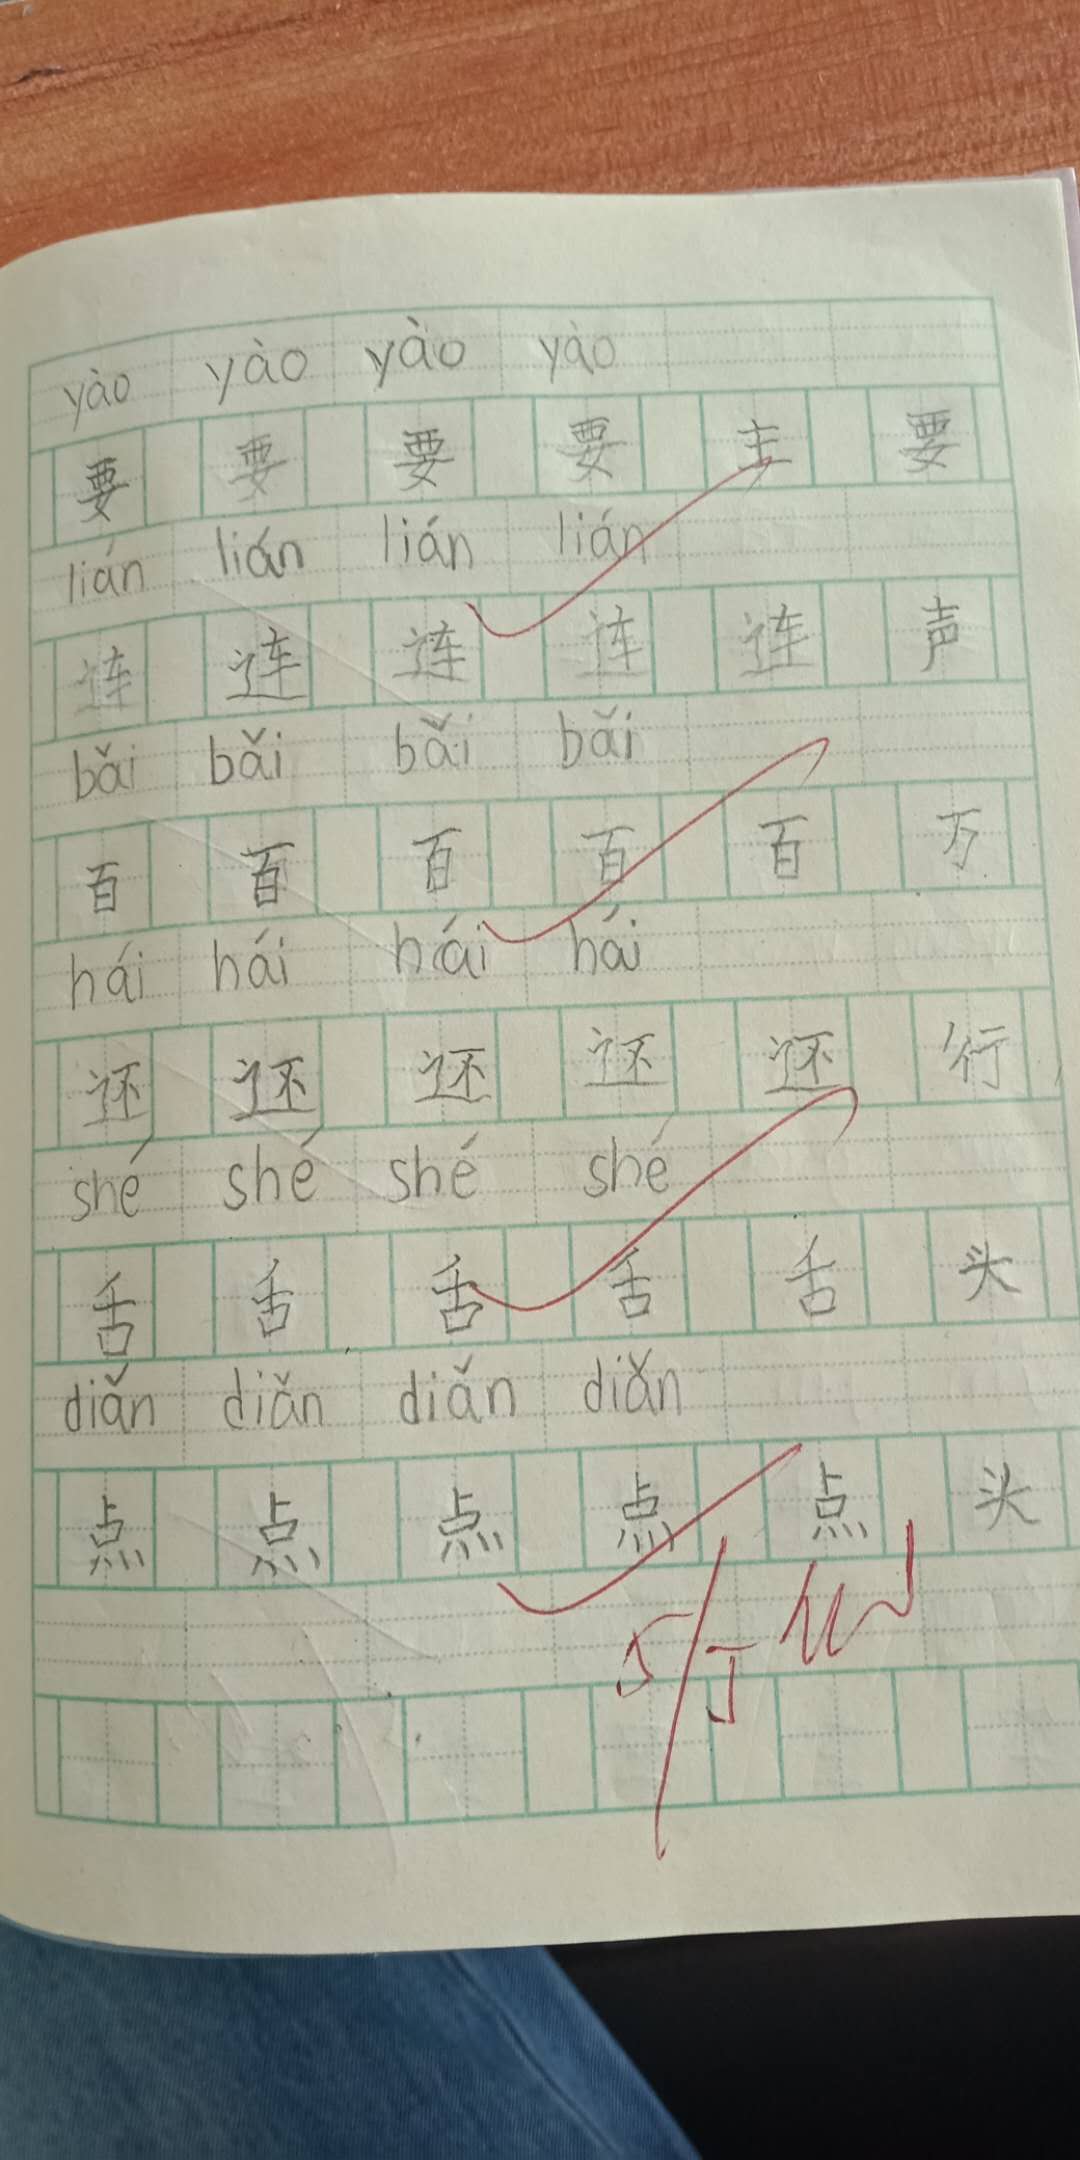 yào yào yào yào
要 要 要 要 主 要
lián lián lián lián
连 连 连 连 连 声
bǎi bǎi bǎi bǎi
百 百 百 百 百 万
hái hái hái hái
还 还 还 还 还 行
shé shé shé shé
舌 舌 舌 舌 舌 头
diǎn diǎn diǎn diǎn
点 点 点 点 点 头